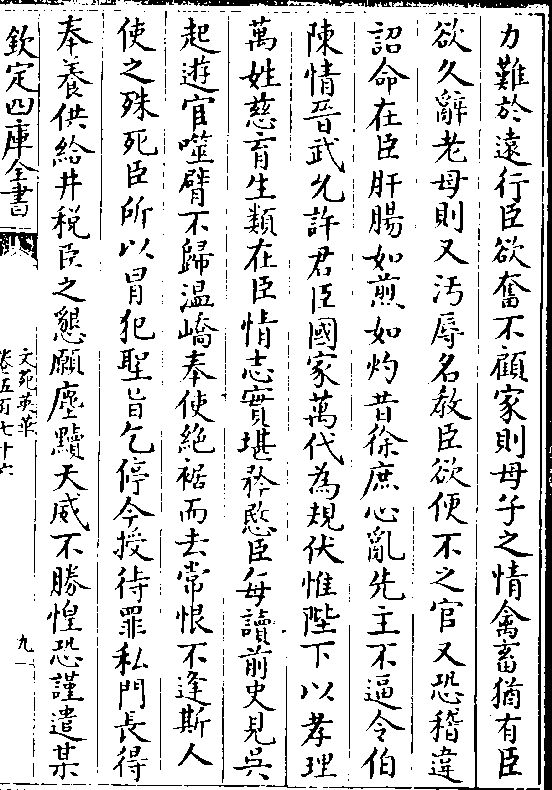 力難於逺行臣欲奮不顧家則母子之情禽畜猶有臣
欲久辭老母則又汚辱名教臣欲便不之官又恐稽違
詔命在臣肝腸如煎如灼昔徐庶心亂先主不逼令伯
陳情晉武允許君臣國家萬代為規伏惟陛下以孝理
萬姓慈育生類在臣情志實堪矜愍臣每讀前史見吳
起遊官噬臂不歸温嶠奉使絶裾而去常恨不逢斯人
使之殊死臣所以冒犯聖旨乞停今授待罪私門長得
奉養供給井税臣之懇願塵黷天威不勝惶恐謹遣某
欽定四庫全書
文苑英華
卷五百七十六
九